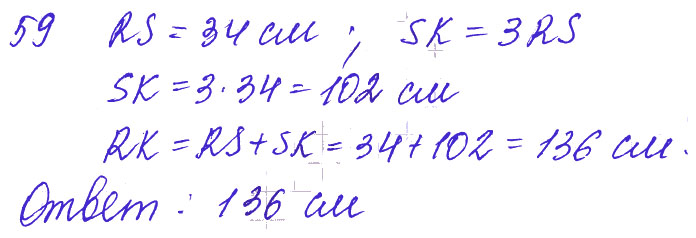 59 RS = 34 см ; SK = 3RS
SK = 3 · 34 = 102 см
RK = RS + SK = 34 + 102 = 136 см.
Ответ : 136 см